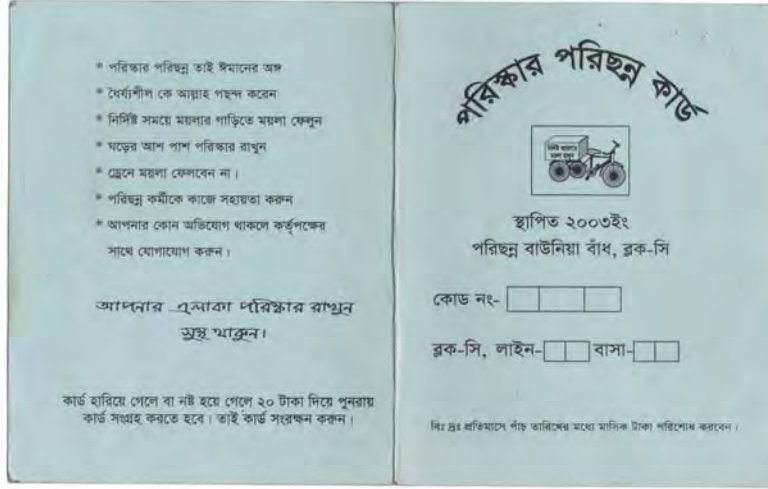 * পরিস্কার পরিছন্ন তাই ঈমানের অঙ্গ
* ধৈর্য্যশীল কে আল্লাহ পছন্দ করেন
* নির্দিষ্ট সময়ে ময়লার গাড়িতে ময়লা ফেলুন
* ঘড়ের আশ পাশ পরিস্কার রাখুন
* ড্রেনে ময়লা ফেলবেন না।
* পরিছন্ন কর্মীকে কাজে সহায়তা করুন
* আপনার কোন অভিযোগ থাকলে কর্তৃপক্ষের
সাথে যোগাযোগ করুন।
আপনার এলাকা পরিষ্কার রাখুন
সুস্থ থাকুন।
কার্ড হারিয়ে গেলে বা নষ্ট হয়ে গেলে ২০ টাকা দিয়ে পুনরায়
কার্ড সংগ্রহ করতে হবে। তাই কার্ড সংরক্ষন করুন।
পরিস্কার পরিছন্ন কার্ড
স্থাপিত ২০০৩ইং
পরিছন্ন বাউনিয়া বাঁধ, ব্লক-সি
কোড নং-
ব্লক-সি, লাইন- বাসা-
বিঃ দ্রঃ প্রতিমাসে পাঁচ তারিখের মধ্যে মাসিক টাকা পরিশোধ করবেন।